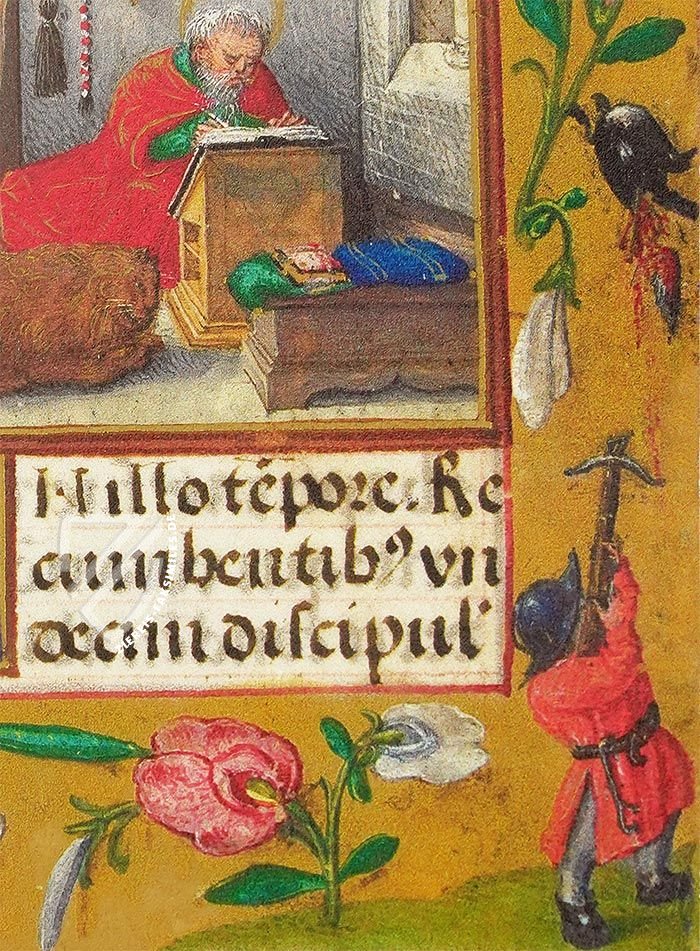 N illo tēpore. Re
cumbentib⁹ vn
decim discipul'